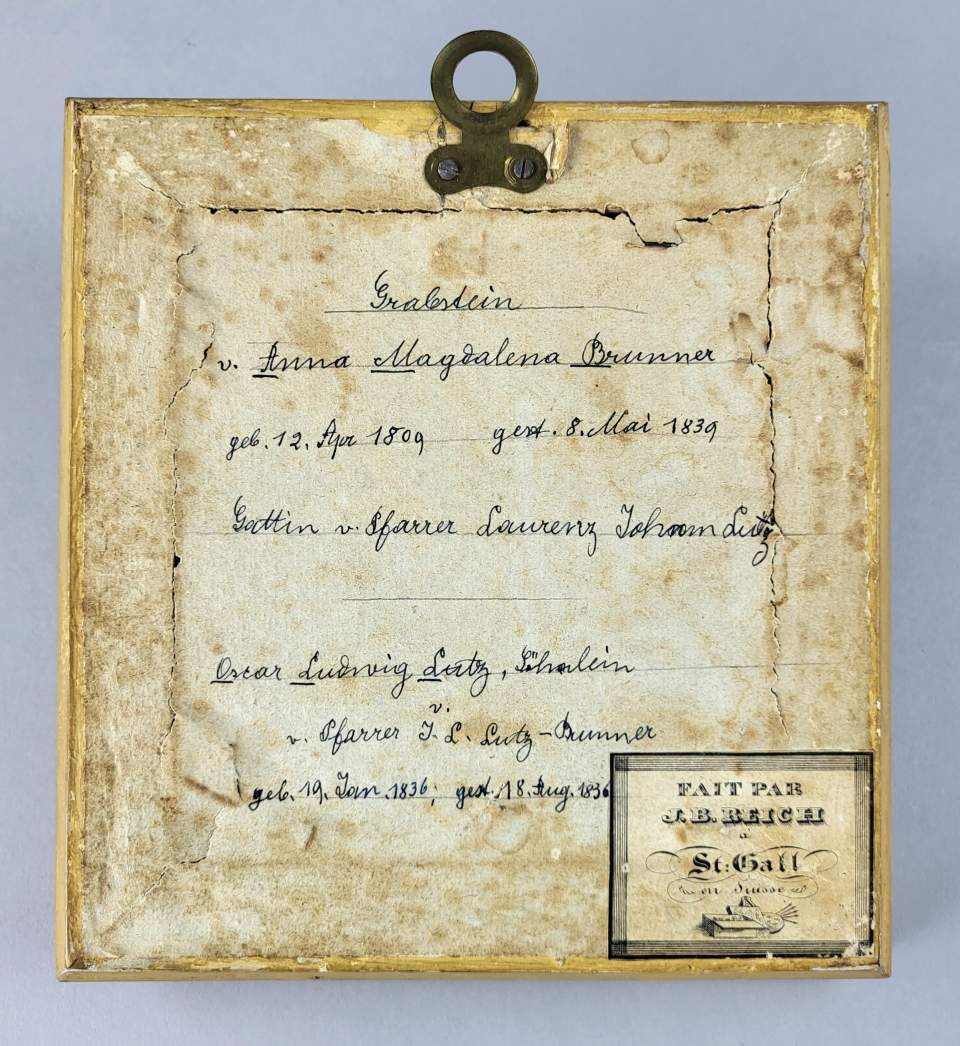 Grabstein
v. Anna Magdalena Brunner
geb. 12. Apr 1809 gest. 8. Mai 1839
Gattin v. Pfarrer Laurenz Johann Lutz
Oscar Ludwig Lutz, Söhnlein
v.
v. Pfarrer J. L. Lutz-Brunner
geb. 19. Jan. 1836; gest. 18. Aug. 1836
FAIT PAR
J. B. REICH
à
St: Gall
en Suisse